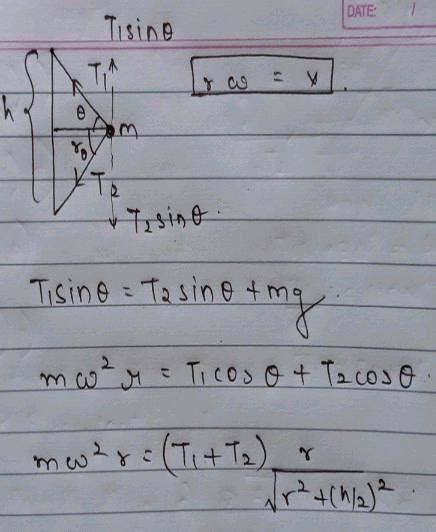 DATE: /
T₁sinθ
T₁
rω = v
h
θ
m
θ
T₂
T₂sinθ.
T₁sinθ = T₂sinθ + mg.
mω²r = T₁cosθ + T₂cosθ.
mω²r = (T₁+T₂) r / √r²+(h/2)²